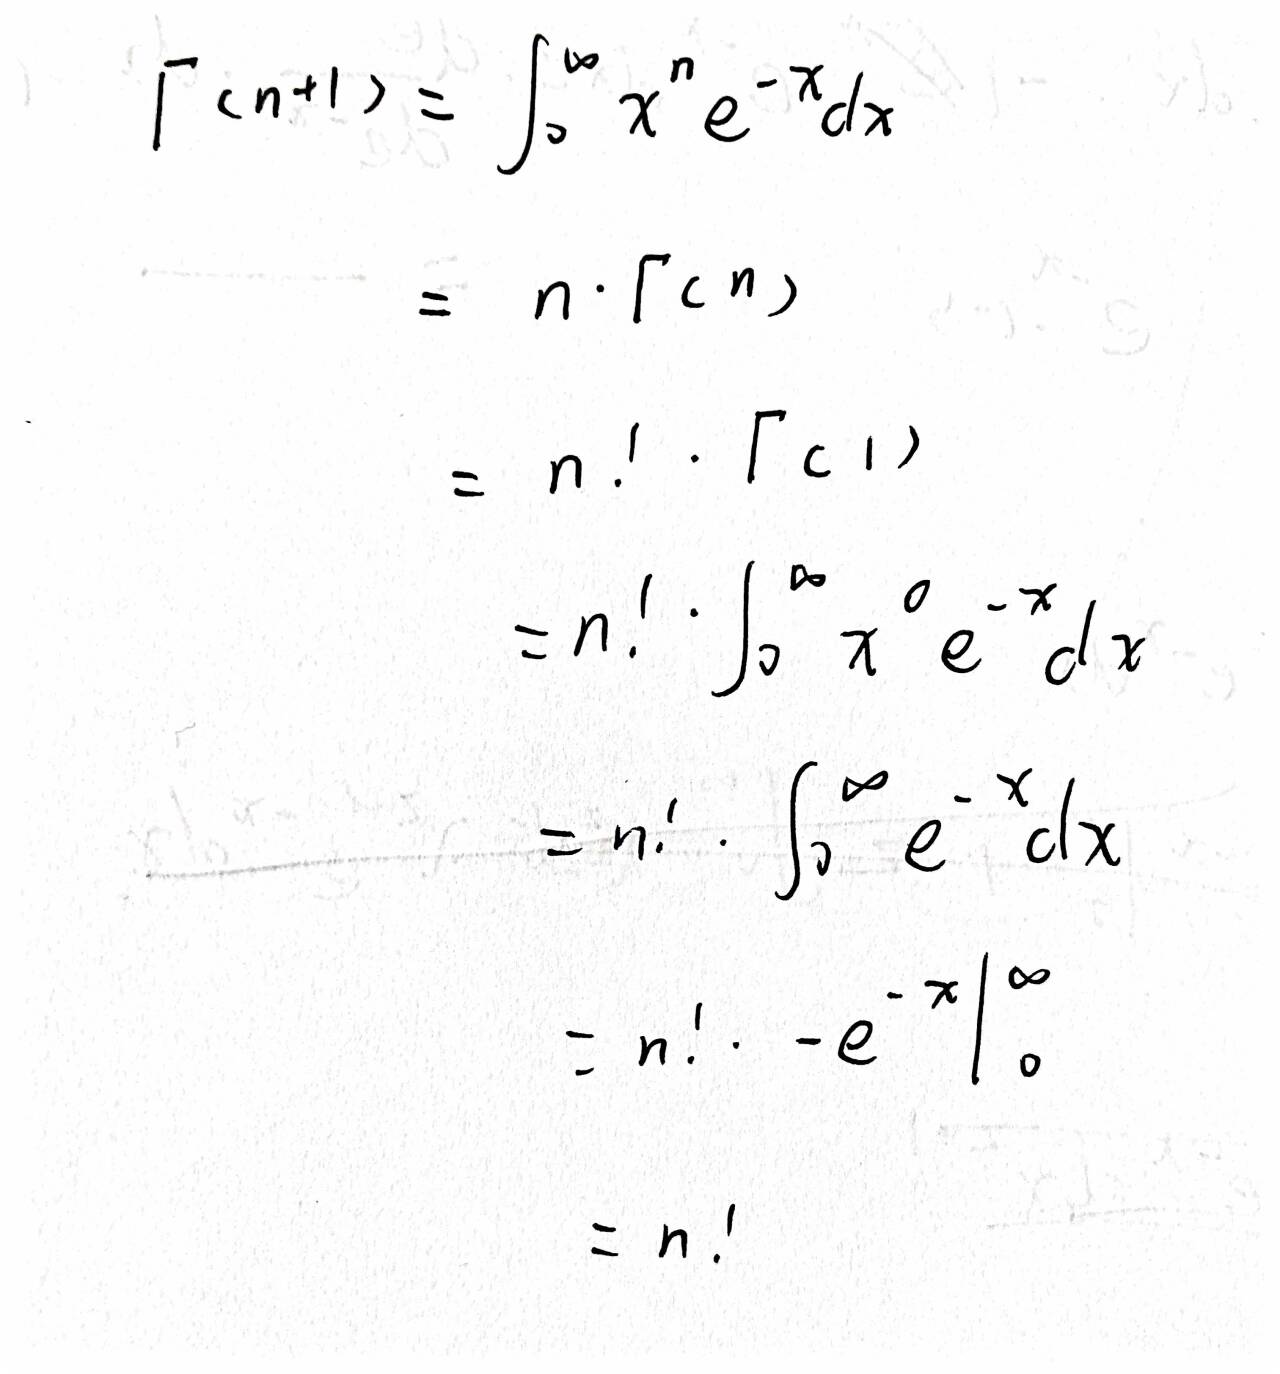 Γ(n+1) = ∫₀^∞ xⁿ e^{-x} dx
= n · Γ(n)
= n! · Γ(1)
= n! · ∫₀^∞ x⁰ e^{-x} dx
= n! · ∫₀^∞ e^{-x} dx
= n! · -e^{-x} |₀^∞
= n!